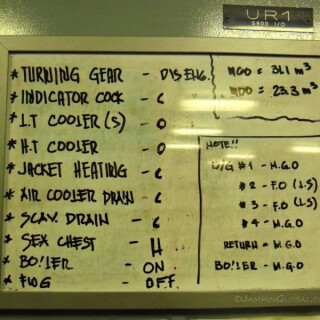 UR1
5800 I/O
* TURNING GEAR - DISENG.
* INDICATOR COCK - C
* L.T COOLER (S) - O
* H.T COOLER - O
* JACKET HEATING - C
* AIR COOLER DRAIN - C
* SCAV DRAIN - C
* SEX CHEST - H
* BOILER - ON
* FWG - OFF.
MGO = 31.1 m³
MDO = 23.3 m³
NOTE!!
D/G #1 - M.G.O
#2 - F.O (L.S)
#3 - F.O (L.S)
#4 - M.G.O
RETURN - M.G.O
BOILER - M.G.O
©JAMMINGLOBAL.COM